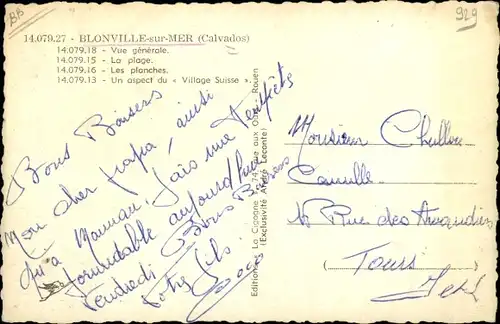 BB
929
14.079.27 - BLONVILLE-sur-MER (Calvados)
14.079.18 - Vue générale.
14.079.15 - La plage.
14.079.16 - Les planches.
14.079.13 - Un aspect du « Village Suisse ».
Bons Baisers
Mon cher papa, ainsi
qu'a Maman, fais une
formidable aujourd'hui
Vendredi Bons Baisers
Votre fils
Editions La Cigogne - 74, rue aux Ours - Rouen
(Exclusivité André Leconte)
Monsieur
Camille
16 Rue des
Tours